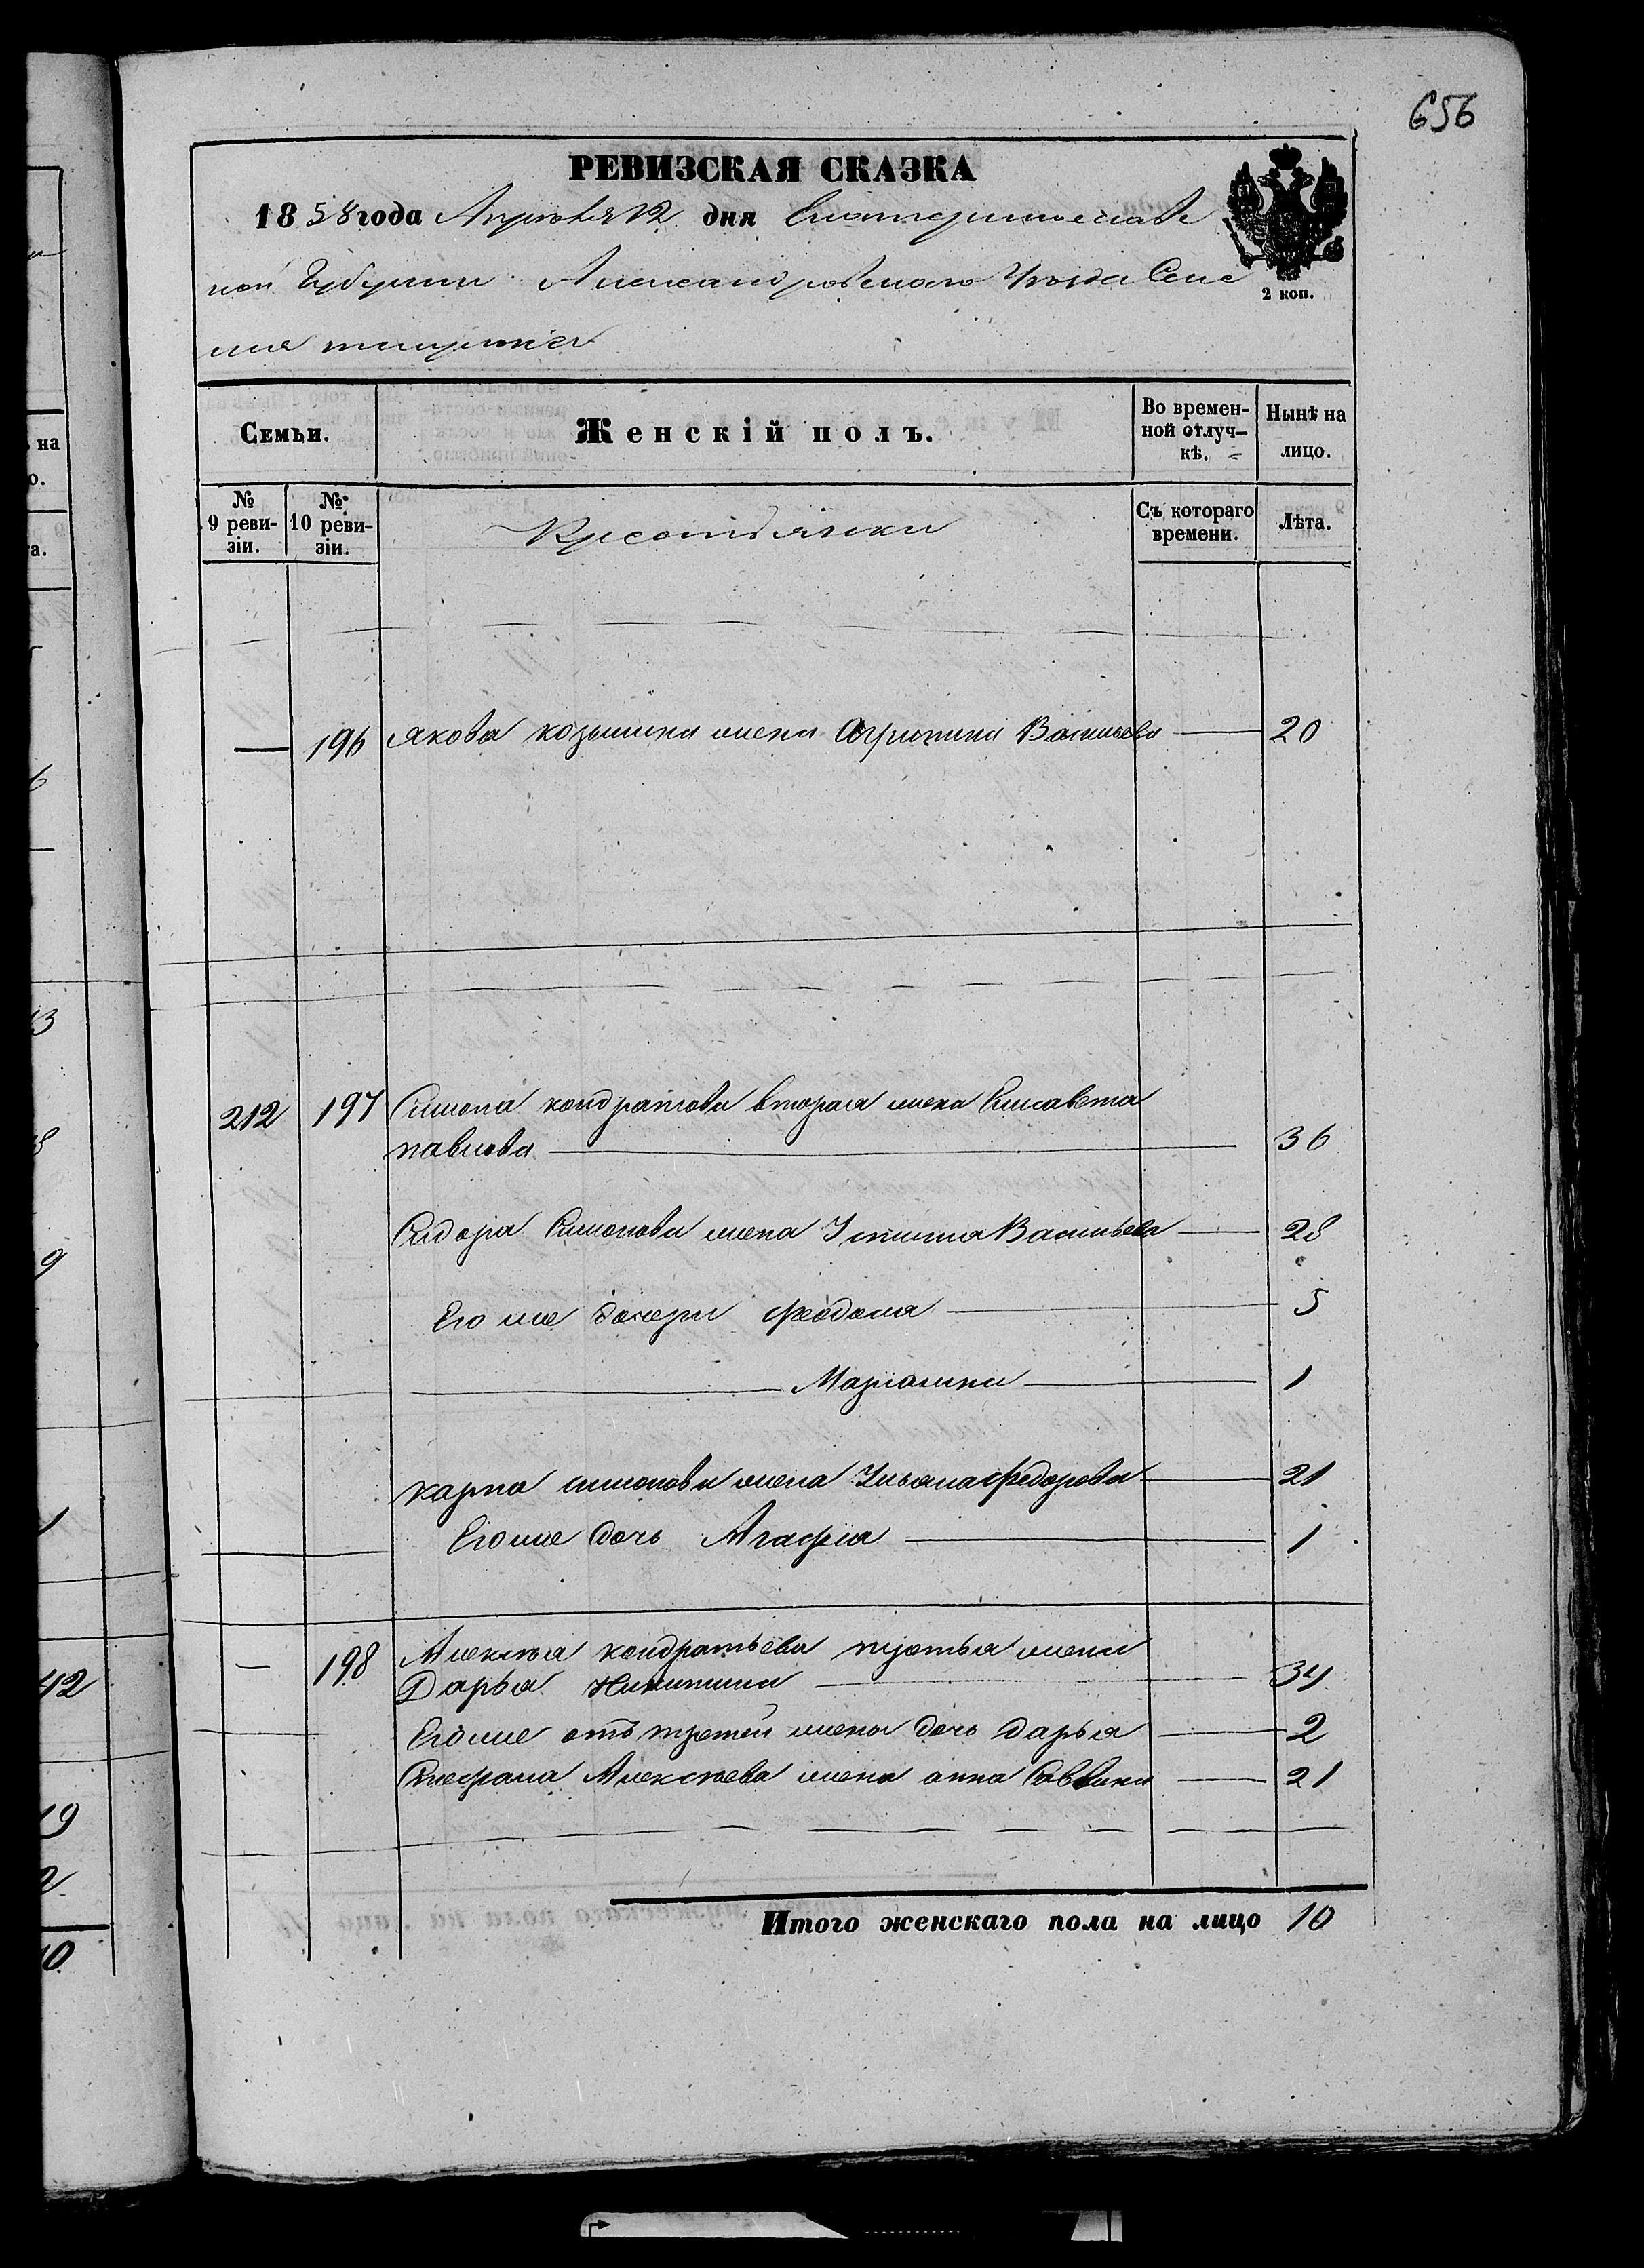 656
РЕВИЗСКАЯ СКАЗКА
1858 года Апреля 12 дня Екатеринославс
кой Губернии Александровского Уезда Селе
2 коп.
Семьи.
Женскій полъ.
Во времен-
ной отлуч-
кѣ.
Нынѣ на
лицо.
№
9 реви-
зіи.
№
10 реви-
зіи.
Крестьянки
Съ котораго
времени.
Лѣта.
— 196 Якова козьмина жена Агрипина Васильева — 20
212 197 Симона кондратова вторая жена Елисавета
павлова — 36
Сидора Симонова жена Устинья Васильева — 28
Его же дочери Феодосия — 5
— Марианна — 1
карпа симонова жена Ульяна федорова — 21
Его же дочь Агафия — 1
— 198 Алексея кондратьева третья жена
Дарья Никитина — 34
Его же отъ третей жены дочь дарья — 2
Стефана Алексеева жена анна Саввина — 21
Итого женскаго пола на лицо 10
на
о.
а.
6
13
8
9
1
42
19
2
10